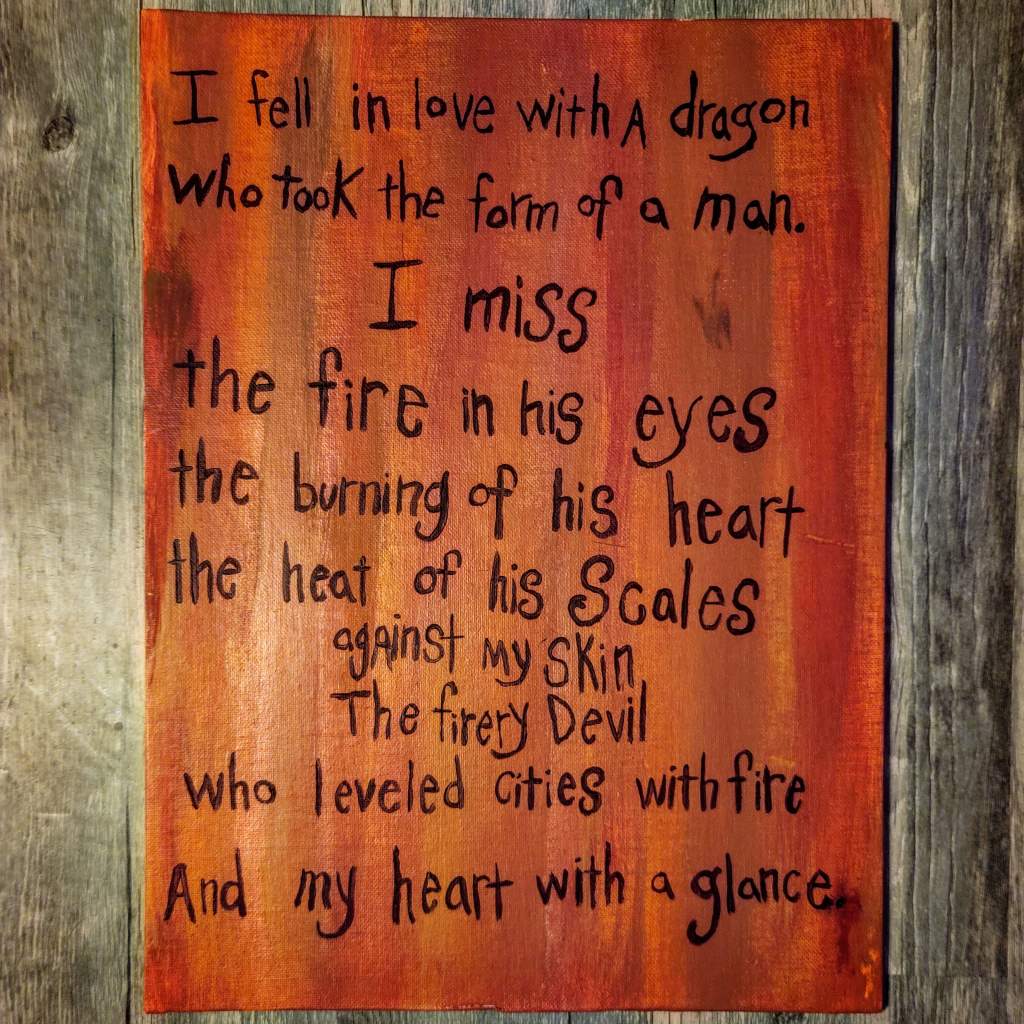 I fell in love with A dragon
who took the form of a man.
I miss
the fire in his eyes
the burning of his heart
the heat of his Scales
against my skin
The firery Devil
who leveled cities with fire
And my heart with a glance.